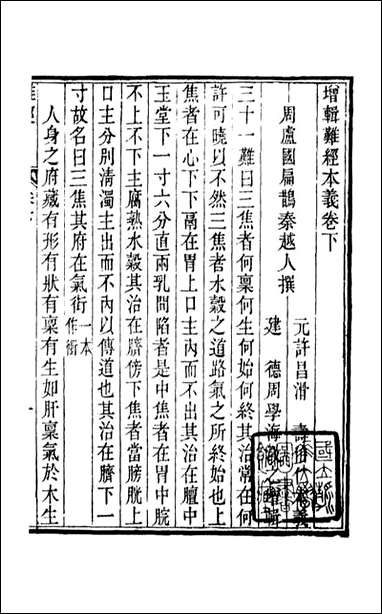 增輯難經本義卷下
周盧國扁鵲秦越人撰
元許昌滑壽
建德周學海
三十一難曰三焦者何稟何生何始何終其治常在何
許可曉以不然三焦者水穀之道路氣之所終始也上
焦者在心下下膈在胃上口主內而不出其治在膻中
玉堂下一寸六分直兩乳間陷者是中焦者在胃中脘
不上不下主腐熟水穀其治在臍傍下焦者當膀胱上
口主分別清濁主出而不內以傳道也其治在臍下一
寸故名曰三焦其府在氣街一本作衝
人身之府藏有形有狀有稟有生如肝稟氣於木生